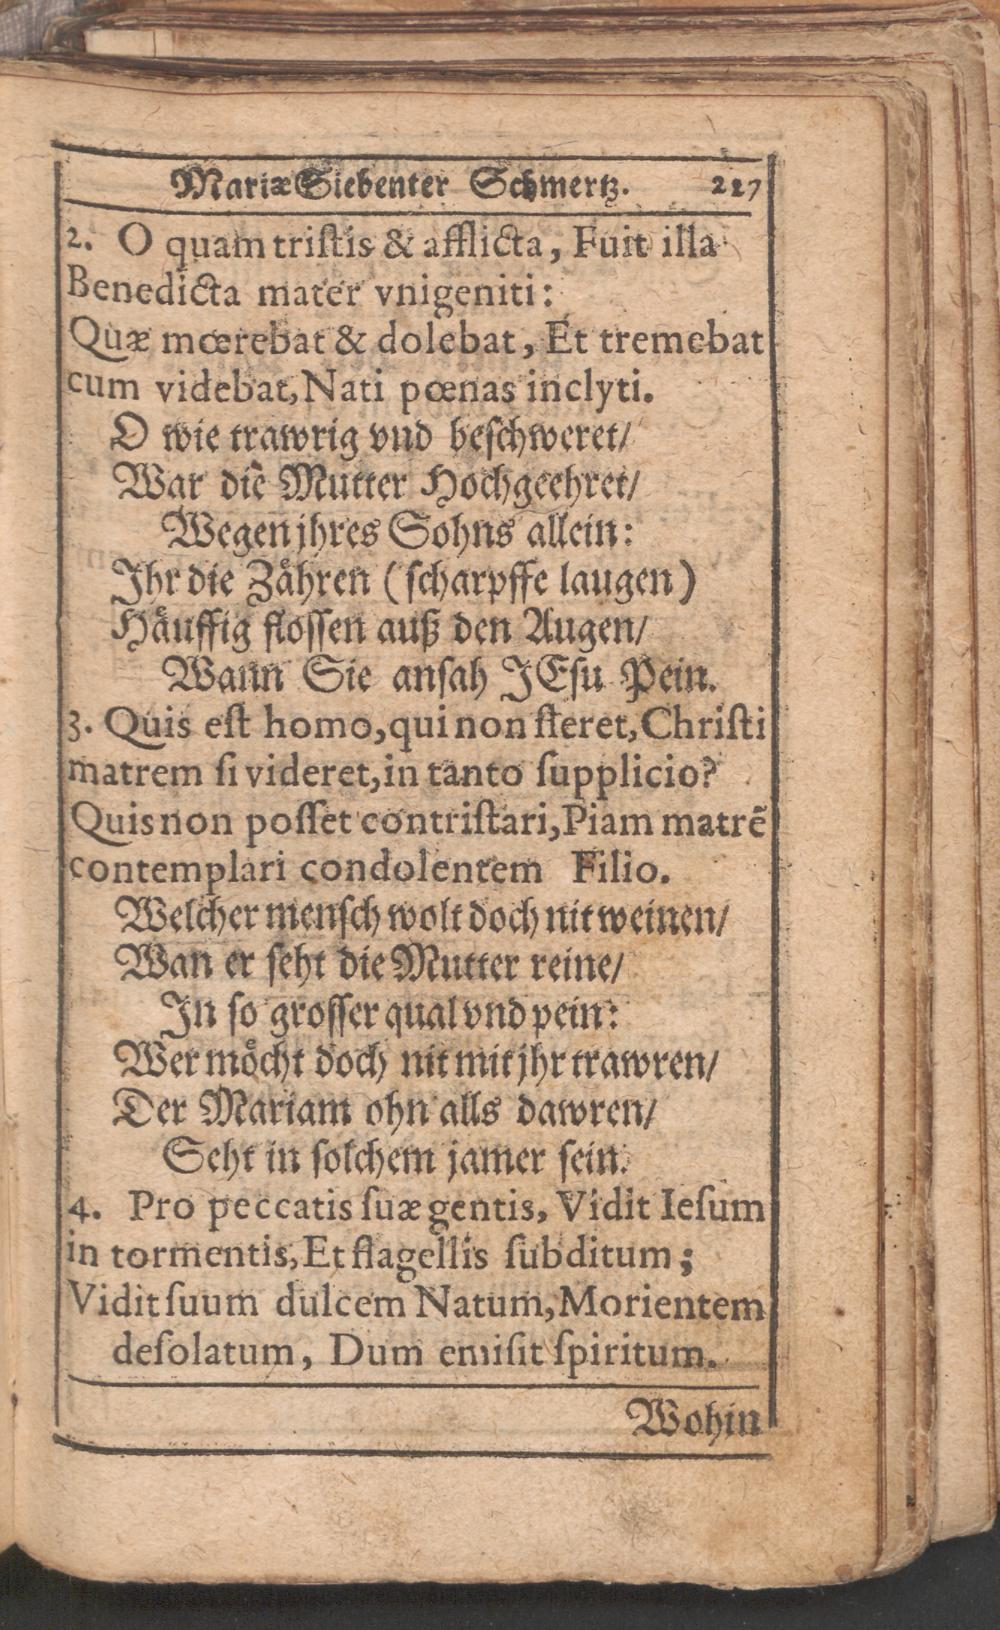 Mariæ Siebenter Schmertz. 227
2. O quam triſtis & afflicta, Fuit illa
Benedicta mater vnigeniti:
Quæ mœrebat & dolebat, Et tremebat
cum videbat, Nati pœnas inclyti.
O wie trawrig vnd beſchweret/
War die Mutter Hochgeehret/
Wegen jhres Sohns allein:
Ihr die Zåhren (ſcharpffe laugen)
Håuffig floſſen auß den Augen/
Wann Sie anſah JEſu Pein.
3. Quis eſt homo, qui non fleret, Chriſti
matrem ſi videret, in tanto ſupplicio?
Quis non poſſet contriſtari, Piam matrẽ
contemplari condolentem Filio.
Welcher menſch wolt doch nit weinen/
Wan er ſeht die Mutter reine/
In ſo groſſer qual vnd pein:
Wer mo̊cht doch nit mit jhr trawren/
Der Mariam ohn alls dawren/
Seht in ſolchem jamer ſein.
4. Pro peccatis ſuæ gentis, Vidit Ieſum
in tormentis, Et flagellis ſubditum;
Vidit ſuum dulcem Natum, Morientem
deſolatum, Dum emiſit ſpiritum.
Wohin